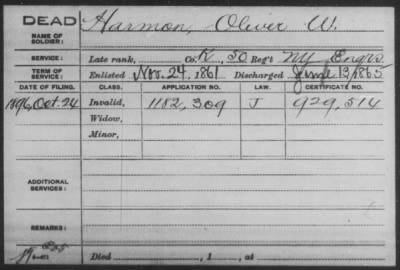 DEAD
Harmon, Oliver W.
NAME OF SOLDIER:
SERVICE: Late rank, Co. K, 50 Reg't NY Engrs.
TERM OF SERVICE: Enlisted Nov. 24, 1861 Discharged June 13, 1865
DATE OF FILING. CLASS. APPLICATION NO. LAW. CERTIFICATE NO.
1896, Oct. 24 Invalid, 1182,309 J 929,514
Widow,
Minor,
ADDITIONAL SERVICES:
REMARKS:
Died , 1 , at